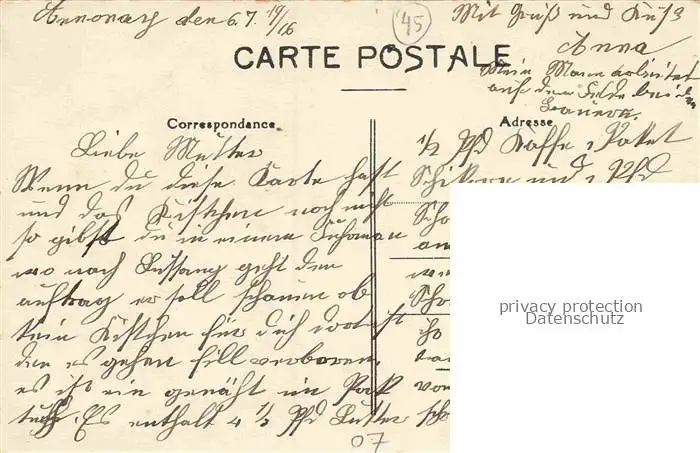 Annonay den 6.7.19/16
45
Mit Gruß und Kuß
Anna
Mein Mann arbeitet
auf dem Felde bei den
Bauern.
CARTE POSTALE
Correspondance
Adresse
Liebe Mutter
Wenn du diese Karte hast
und das Kistchen noch nicht
so gibst du in einem Fuhrman
wo nach Lussang geht den
auftrag er soll schauen ob
kein Kistchen für dich dort ist
den es gehen fill verloren.
es ist ein genäht im Pak
tuch. Es enthält 4 1/2 Pfd Butter
1/2 Pfd Kaffe 1 Paket
Schikore und 1 Pfd
Scho
an
Scho
ko
von
07
privacy protection
Datenschutz